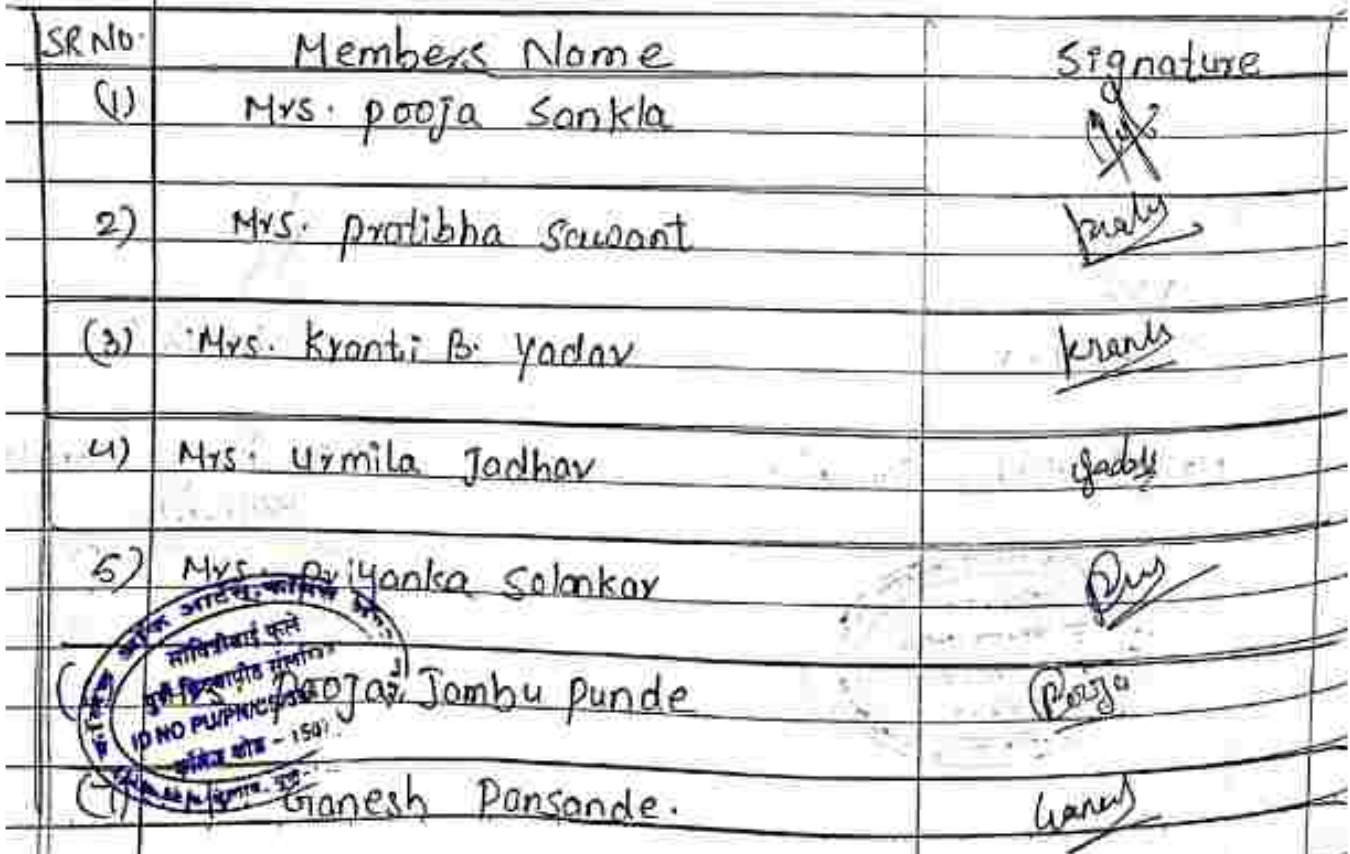 SR No. Members Name Signature
(1) Mrs. pooja Sankla
2) Mrs. pratibha Sawant
(3) Mrs. Kranti B. Yadav Kranti
4) Mrs. Urmila Jadhav
5) Mrs. Priyanka Solankar
Pooja Jambu punde Pooja
(7) Ganesh Pansande. Ganesh
सावित्रीबाई फुले
पुणे विद्यापीठ
ID NO PU/PN/C
कोड - 150